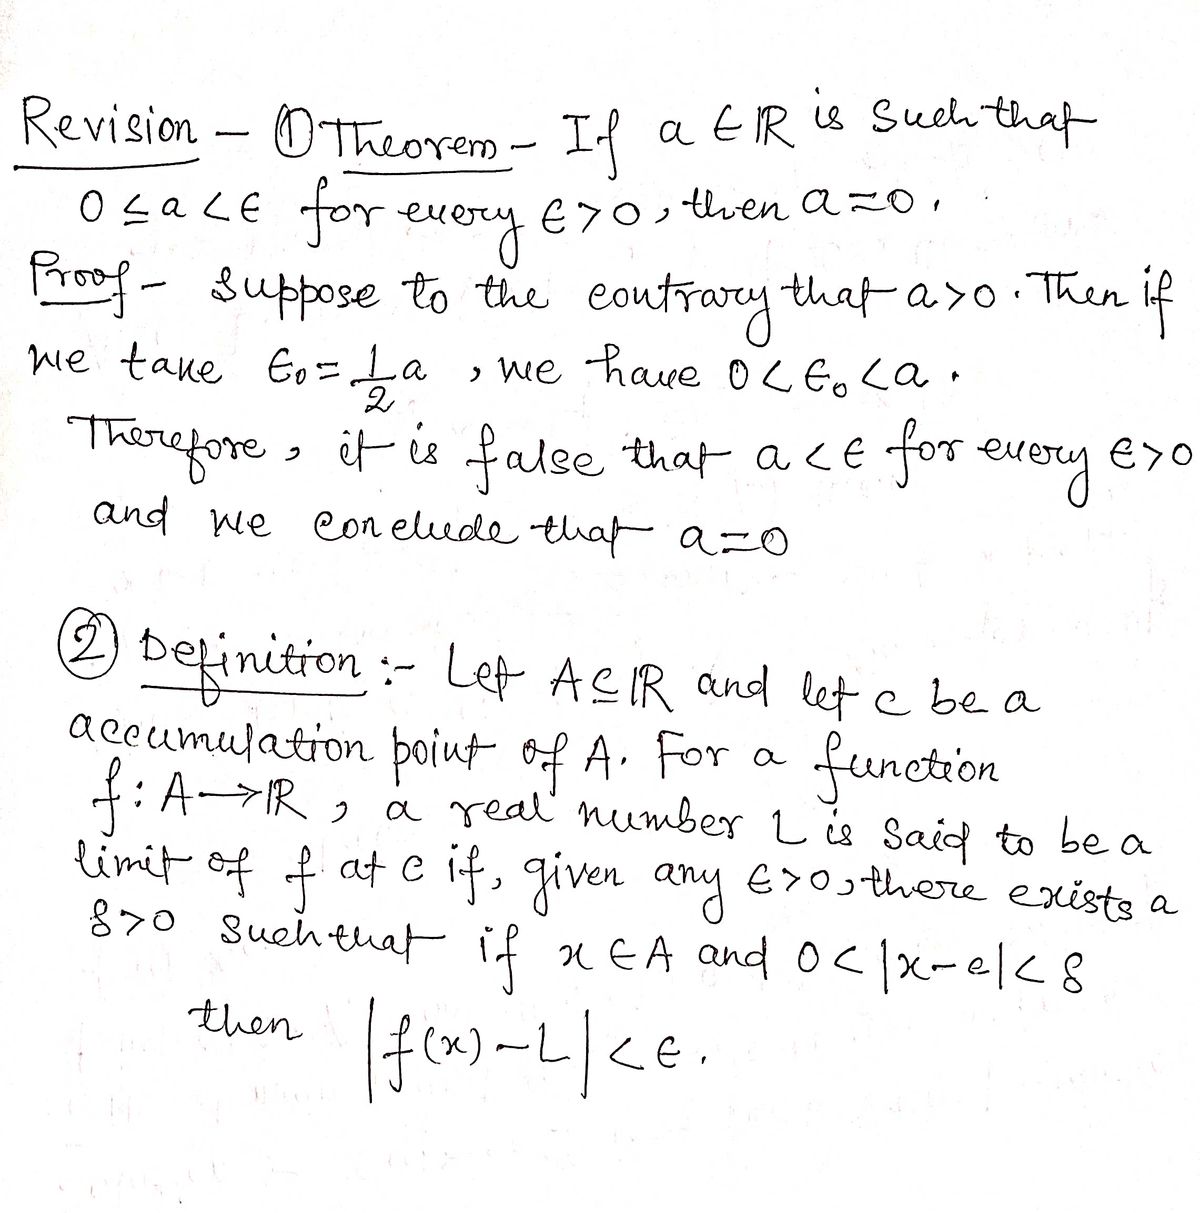 Revision - ① Theorem - If a ∈ ℝ is such that
0 ≤ a < ϵ for every ϵ > 0, then a = 0.
Proof - Suppose to the contrary that a > 0. Then if
we take ϵ₀ = 1/2 a, we have 0 < ϵ₀ < a.
Therefore, it is false that a < ϵ for every ϵ > 0
and we conclude that a = 0
② Definition :- Let A ⊆ ℝ and let c be a
accumulation point of A. For a function
f : A → ℝ, a real number L is said to be a
limit of f at c if, given any ϵ > 0, there exists a
δ > 0 such that if x ∈ A and 0 < |x - c| < δ
then |f(x) - L| < ϵ.